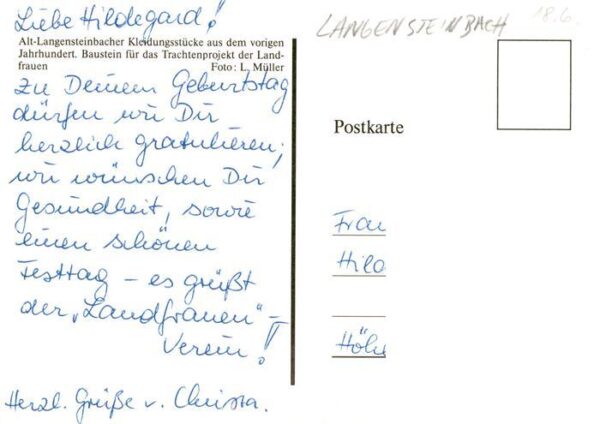 Liebe Hildegard!
Alt-Langensteinbacher Kleidungsstücke aus dem vorigen
Jahrhundert. Baustein für das Trachtenprojekt der Land-
frauen Foto: L. Müller
zu Deinem Geburtstag
dürfen wir Dir
herzlich gratulieren;
wir wünschen Dir
Gesundheit, sowie
einen schönen
Festtag – es grüßt
der „Landfrauen" –
Verein!
Herzl. Grüße v. Christa.
LANGENSTEINBACH 18.6.
Postkarte
Frau
Hild